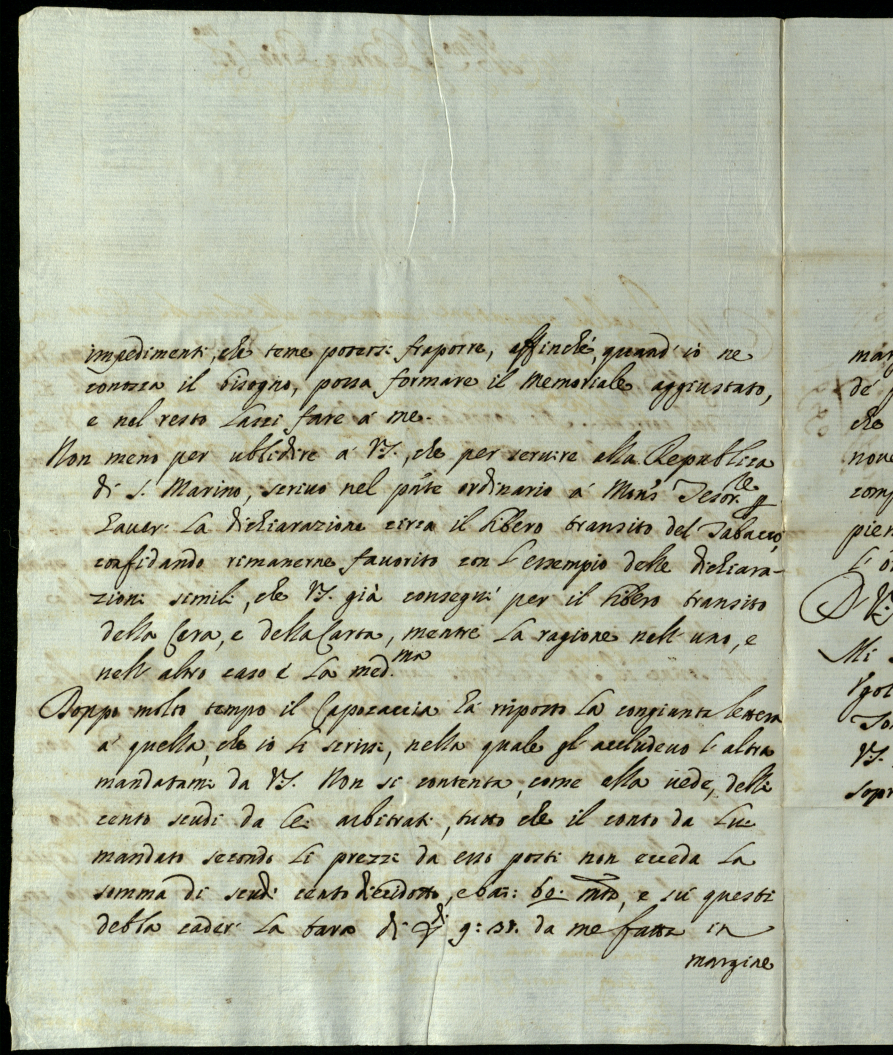 impedimenti, che teme potersi fraporre, affinché, quand' io ne
conosca il bisogno, possa formare il Memoriale aggiustato,
e nel resto lassi fare à me.
Non meno per ubbidire à VS., che per servire alla Republica
di S. Marino, scrivo nel pñte ordinario à Mons.r Tesor.re p
haver la dichiarazione circa il libero transito del Tabacco,
confidando rimanerne favorito con l'essempio delle dichiara-
zioni simili, che VS. già conseguì per il libero transito
della Cera, e della Carta, mentre la ragione nell' uno, e
nell' altro caso è la med.ma
Doppo molto tempo il Capozaccia hà risposto la congiunta lettera
à quella, che io li scrissi, nella quale gl' accludevo l' altra
mandatami da VS. Non si contenta, come ella vede, delli
cento scudi da lei arbitrati, tutto che il conto da lui
mandato secondo li prezzi da esso posti non ecceda la
somma di scudi cento dieciotto, e bai: 60: mta, e sù questi
debba cader la tara di 9: 38. da me fatta in
margine
mar
de'
che
nove
comp
pien
Mi
Ugol
VS.
sopr